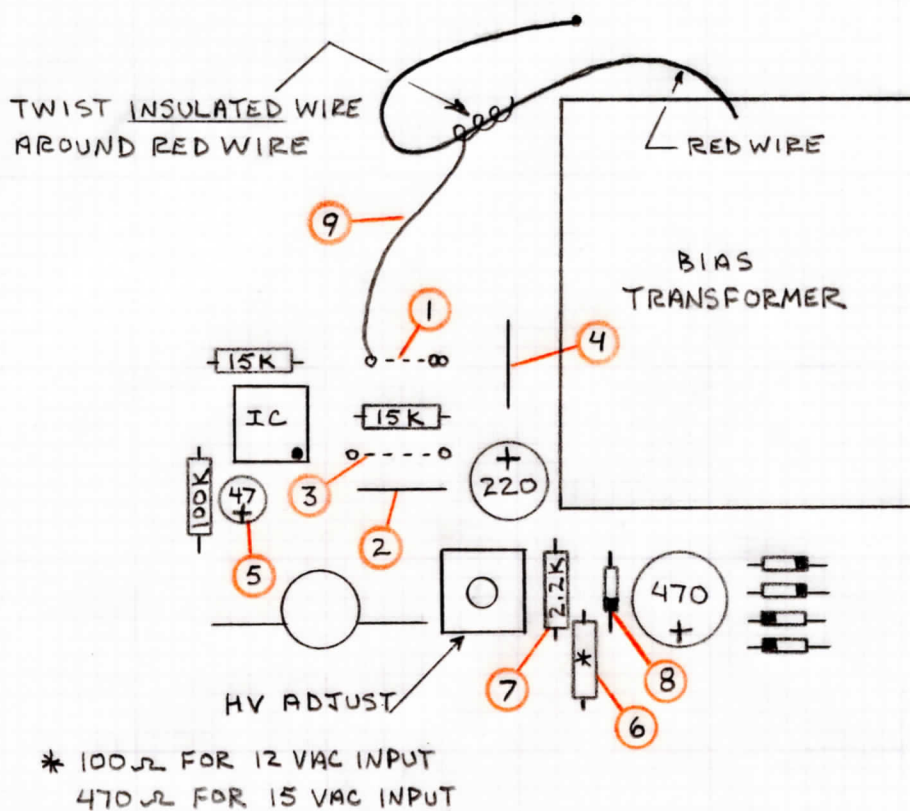 TWIST INSULATED WIRE
AROUND RED WIRE
RED WIRE
9
BIAS
TRANSFORMER
1
4
15K
IC
15K
100K
47
+
3
+
220
2
5
2.2K
470
+
*
7
8
6
HV ADJUST
* 100Ω FOR 12 VAC INPUT
470Ω FOR 15 VAC INPUT